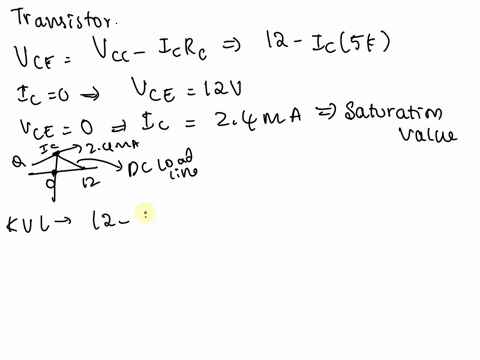 Transistor.
VCE = VCC - ICRC ⇒ 12 - IC(5k)
IC=0 → VCE = 12V
VCE = 0 ⇒ IC = 2.4mA ⇒ Saturation Value
IC 2.4mA
Q
0 12 DC Load line
KVL → 12 -